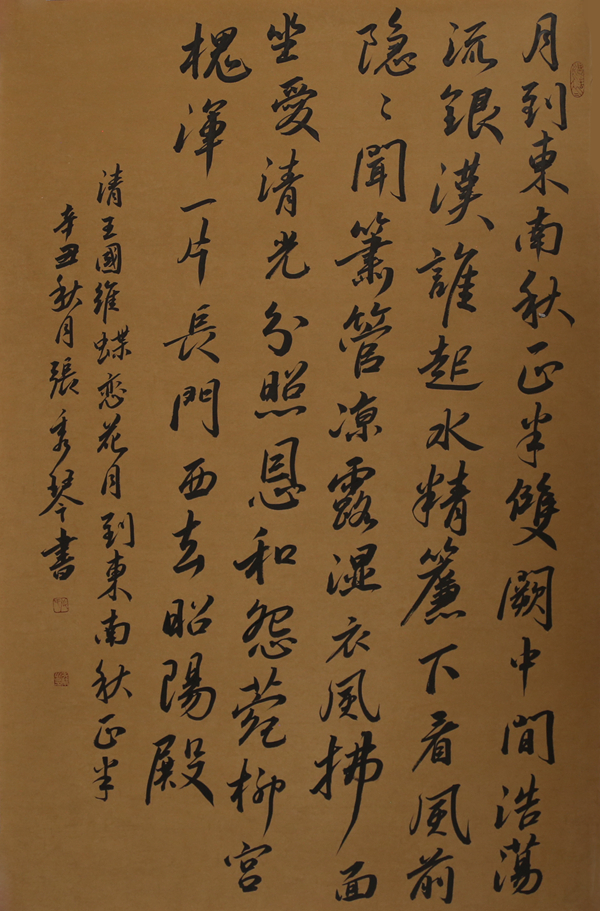 月到東南秋正半雙闕中間浩蕩
流銀漢誰起水精簾下看風前
隐〻聞簫管凉露湿衣風拂面
坐愛清光分照恩和怨苑柳宮
槐渾一片長門西去昭陽殿
清王國維蝶恋花月到東南秋正半
辛丑秋月張秀琴書